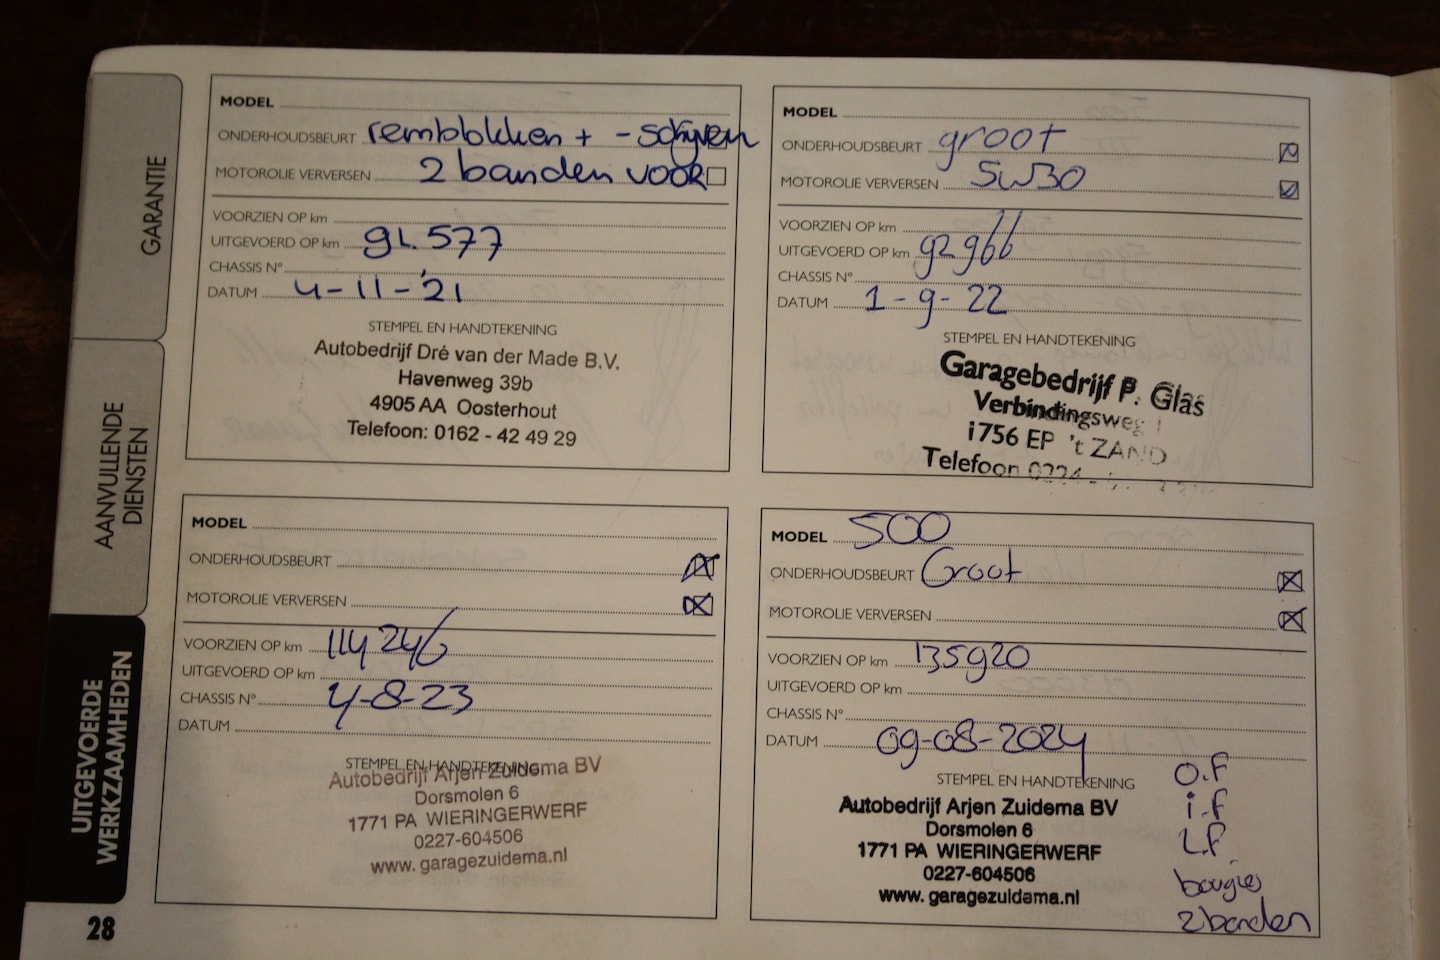 GARANTIE
AANVULLENDE
DIENSTEN
UITGEVOERDE
WERKZAAMHEDEN
28
MODEL
ONDERHOUDSBEURT remblokken + - schijven
MOTOROLIE VERVERSEN 2 banden voor
VOORZIEN OP km
UITGEVOERD OP km 91.577
CHASSIS N°
DATUM 4-11-'21
STEMPEL EN HANDTEKENING
Autobedrijf Dré van der Made B.V.
Havenweg 39b
4905 AA Oosterhout
Telefoon: 0162 - 42 49 29
MODEL
ONDERHOUDSBEURT groot
MOTOROLIE VERVERSEN 5W30
VOORZIEN OP km
UITGEVOERD OP km 92966
CHASSIS N°
DATUM 1-9-22
STEMPEL EN HANDTEKENING
Garagebedrijf P. Glas
Verbindingsweg 1
1756 EP 't ZAND
Telefoon 0224 -
MODEL
ONDERHOUDSBEURT
MOTOROLIE VERVERSEN
VOORZIEN OP km 114246
UITGEVOERD OP km
CHASSIS N° 4-8-23
DATUM
STEMPEL EN HANDTEKENING
Autobedrijf Arjen Zuidema BV
Dorsmolen 6
1771 PA WIERINGERWERF
0227-604506
www.garagezuidema.nl
MODEL 500
ONDERHOUDSBEURT Groot
MOTOROLIE VERVERSEN
VOORZIEN OP km 135920
UITGEVOERD OP km
CHASSIS N°
DATUM 09-08-2024
STEMPEL EN HANDTEKENING
Autobedrijf Arjen Zuidema BV
Dorsmolen 6
1771 PA WIERINGERWERF
0227-604506
www.garagezuidema.nl
O.F
i.F
L.F.
bougies
2 banden